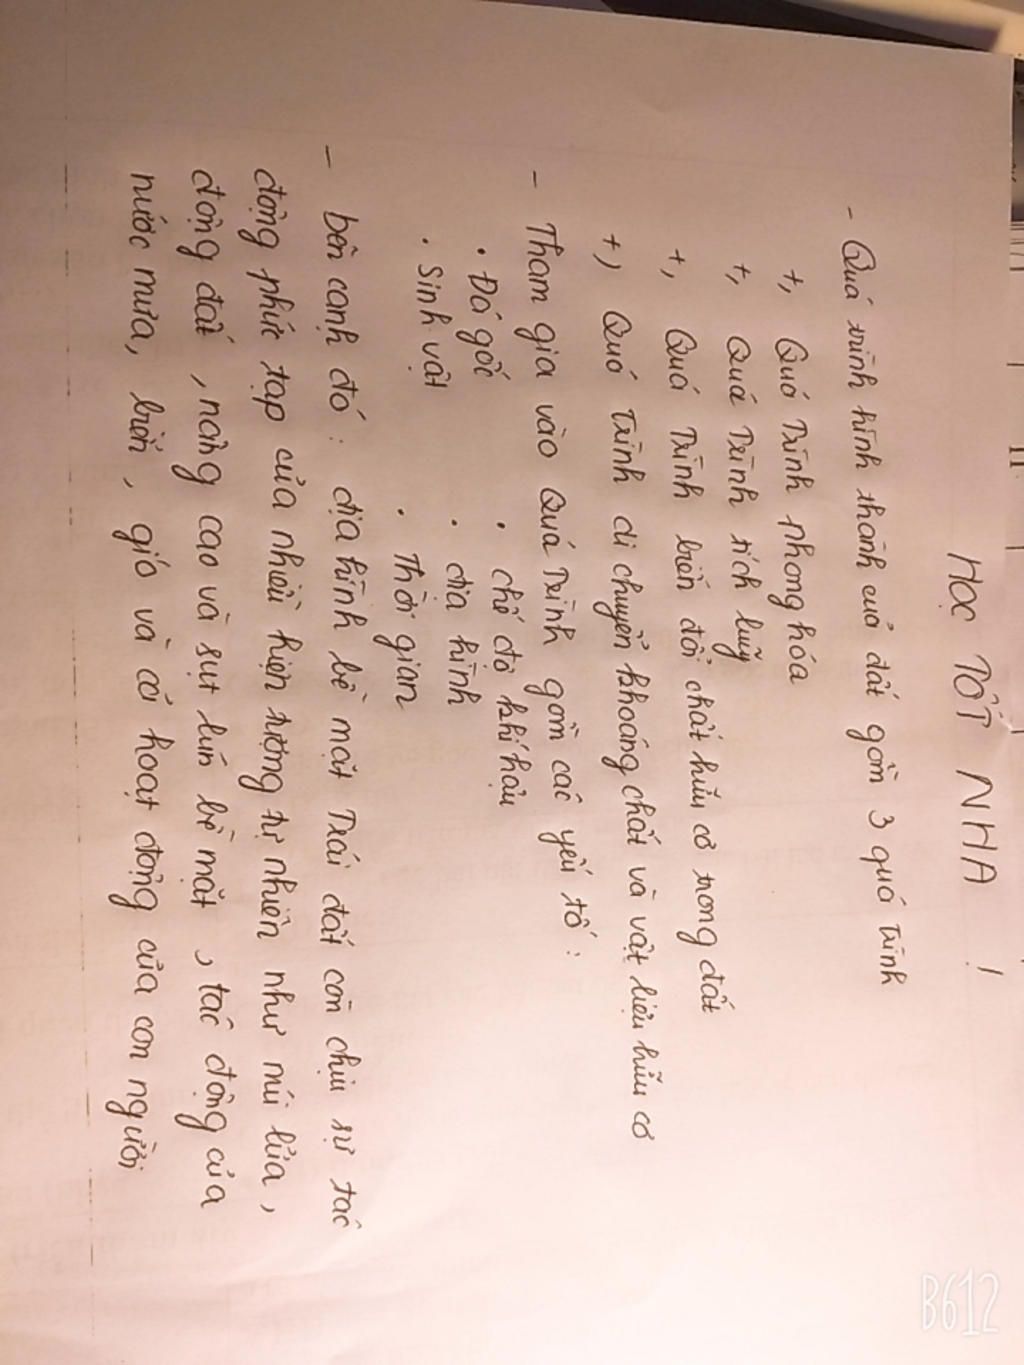 HỌC TỐT NHA !
- Quá trình hình thành của đất gồm 3 quá trình
+, Quá Trình phong hóa
+, Quá Trình tích luỹ
+, Quá Trình biến đổi chất hữu cơ trong đất
+, Quá Trình di chuyển khoáng chất và vật liệu hữu cơ
- Tham gia vào Quá Trình gồm các yếu tố :
• Đá gốc • chế độ khí hậu
• Sinh vật • địa hình
• Thời gian
- bên cạnh đó : địa hình bề mặt Trái đất còn chịu sự tác
động phức tạp của nhiều hiện tượng tự nhiên như núi lửa ,
động đất , nâng cao và sụt lún bề mặt , tác động của
nước mưa, biển , gió và cả hoạt động của con người
B612